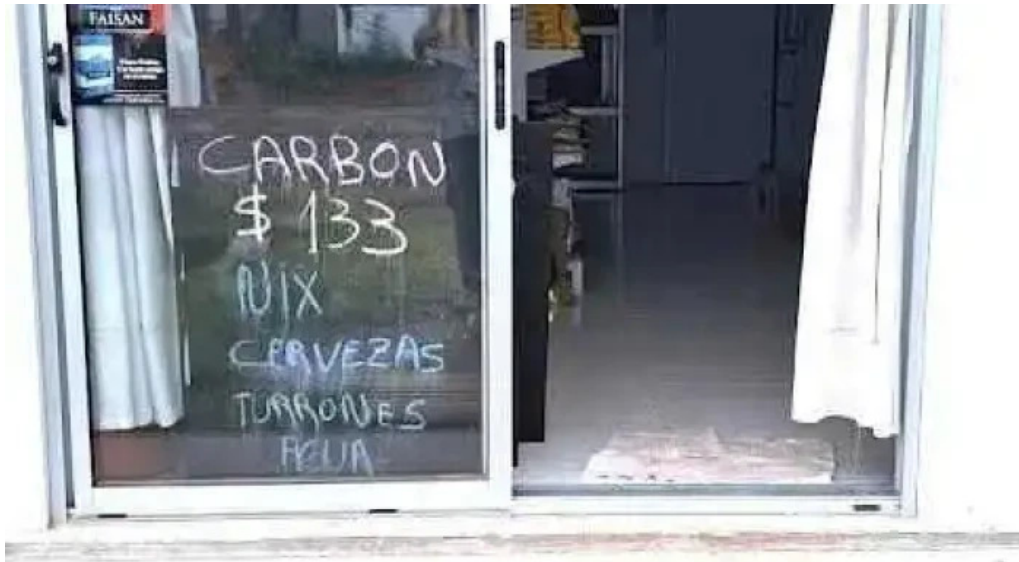 FAISAN
CARBON
$ 133
NIX
CERVEZAS
TURRONES
AGUA